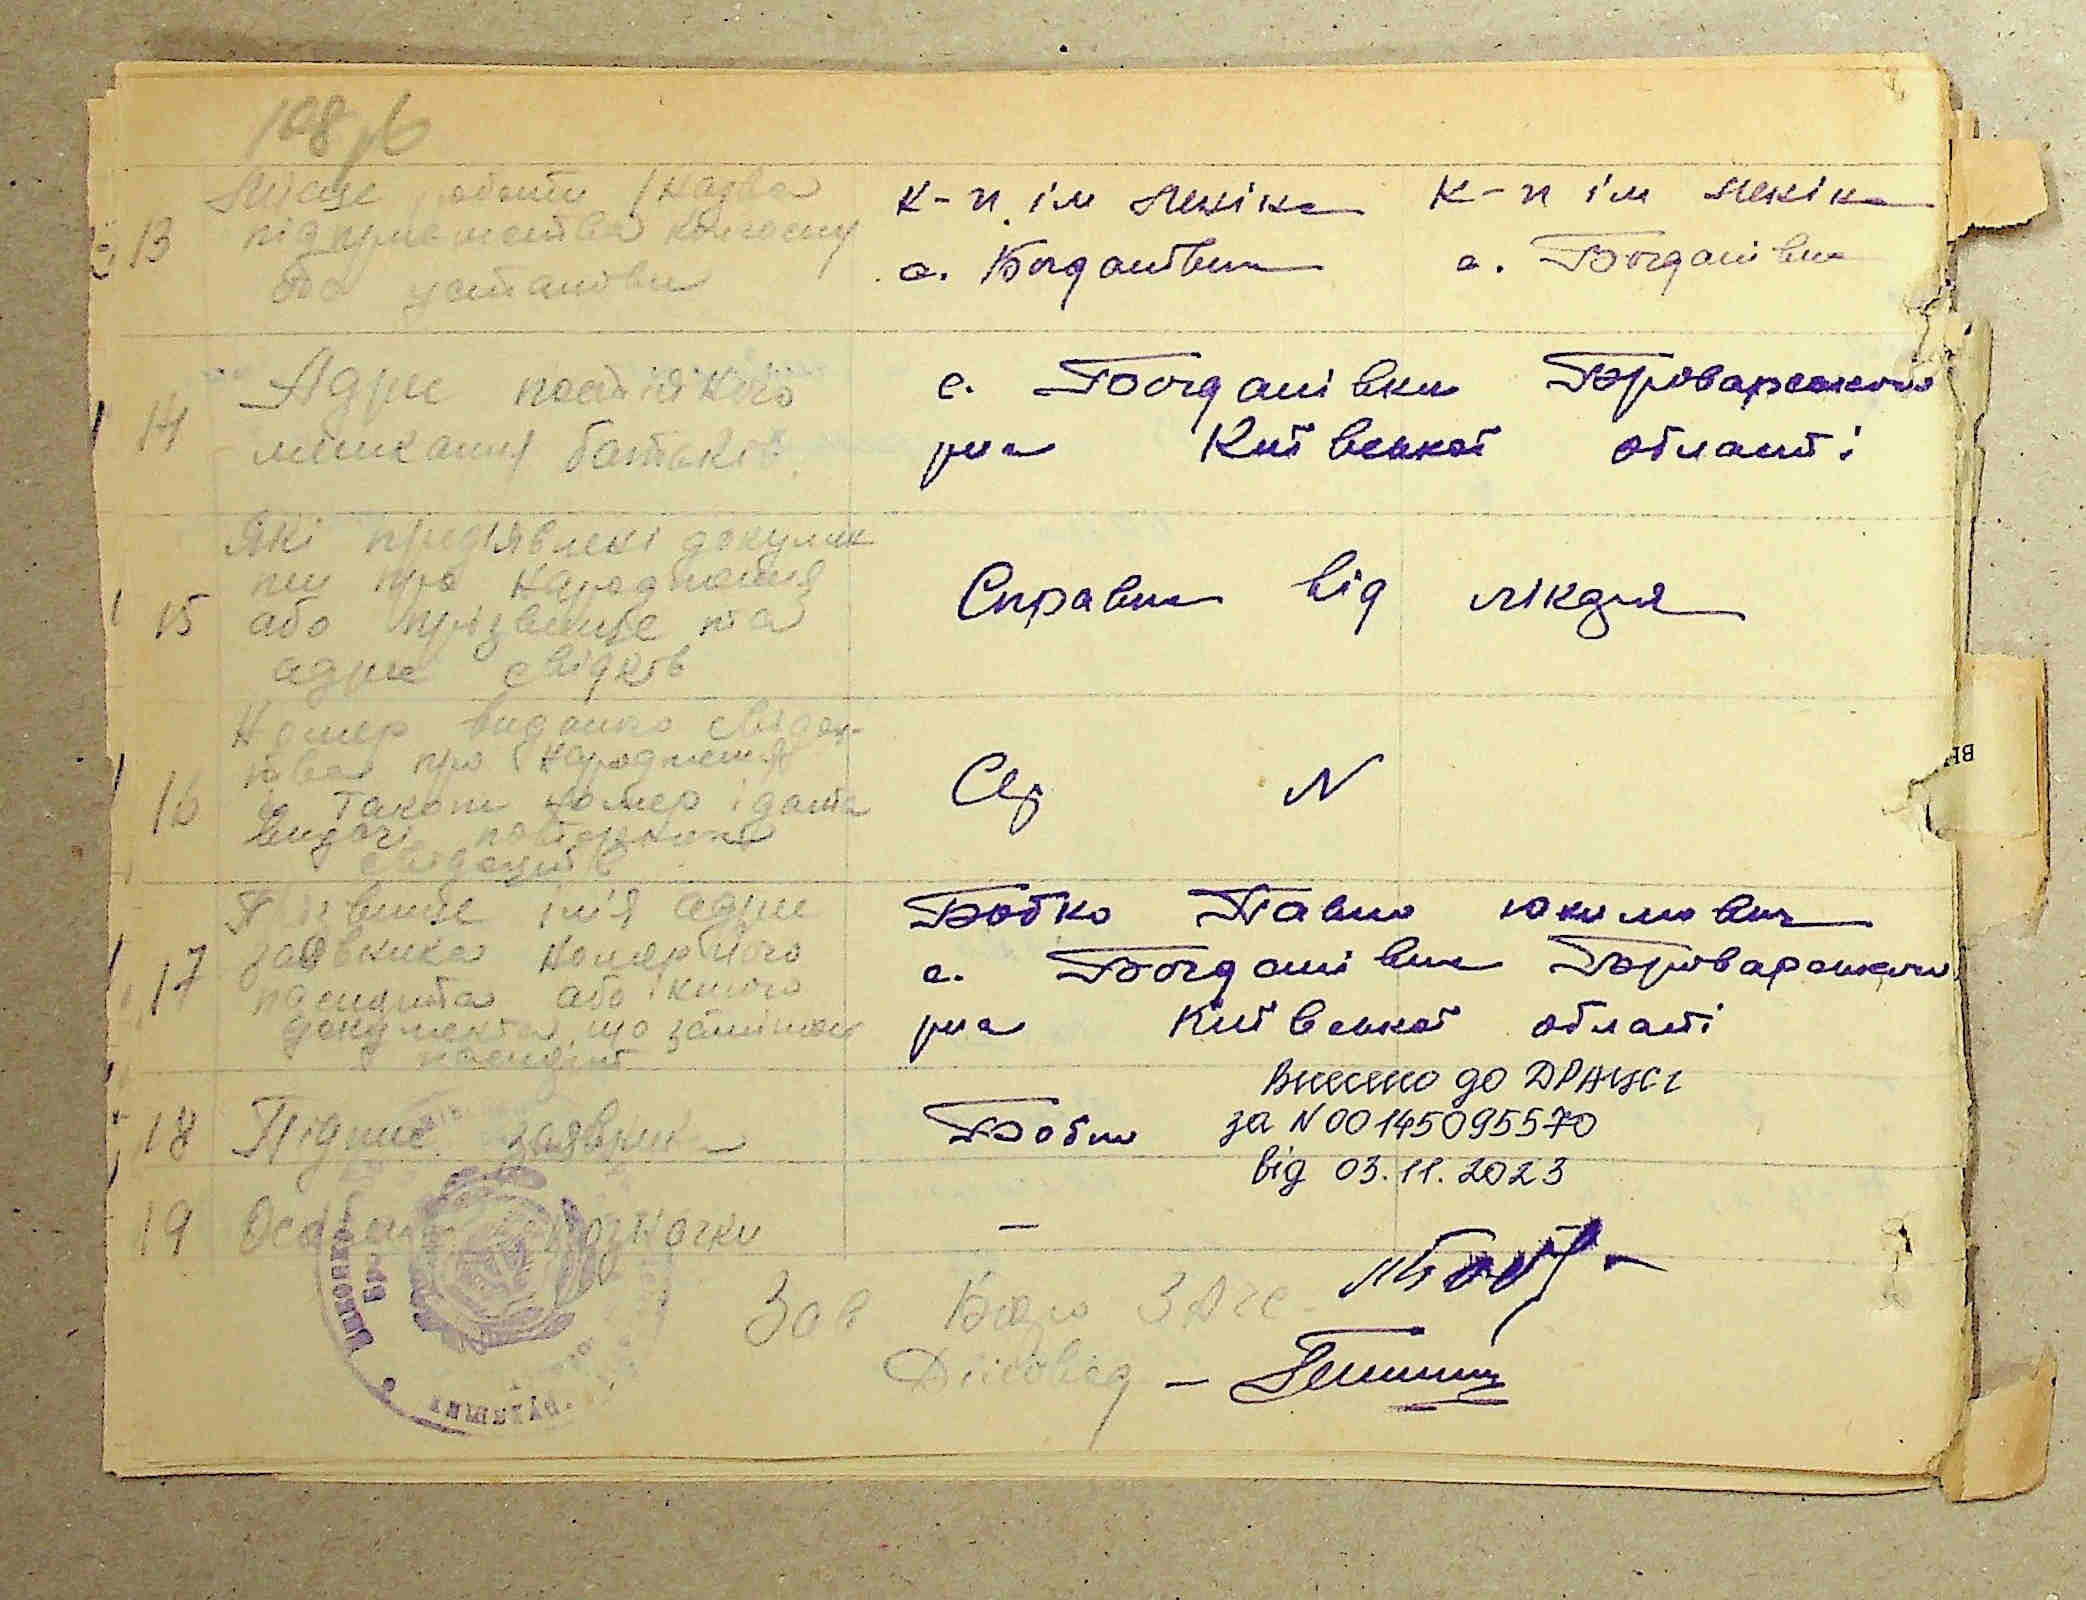 108 зв
13 Місце роботи (назва
підприємства колгоспу
або установи
К-п ім Леніна К-п ім Леніна
с. Богданівка с. Богданівка
14 Адрес постійного
мешкання батьків
с. Богданівки Броварського
р-на Київської області
15 Які пред'явлені докумен
ти про народження
або прізвище та
адрес свідків
Справка від лікаря
16 Номер виданого свідоц-
тва про народження
а також номер і дата
видачі повторних
свідоцтв
Сер N
17 Прізвище ім'я адрес
заявника номер його
паспорта або іншого
документа, що заміняє
паспорт
Бобко Павло Юхимович
с. Богданівка Броварського
р-на Київської області
18 Підпис заявника
Бобко
Внесено до ДРАЦСг
за N 00145095570
від 03.11.2023
19 Особливі відзначки
–
Зав Бюро ЗАГС
Діловод –